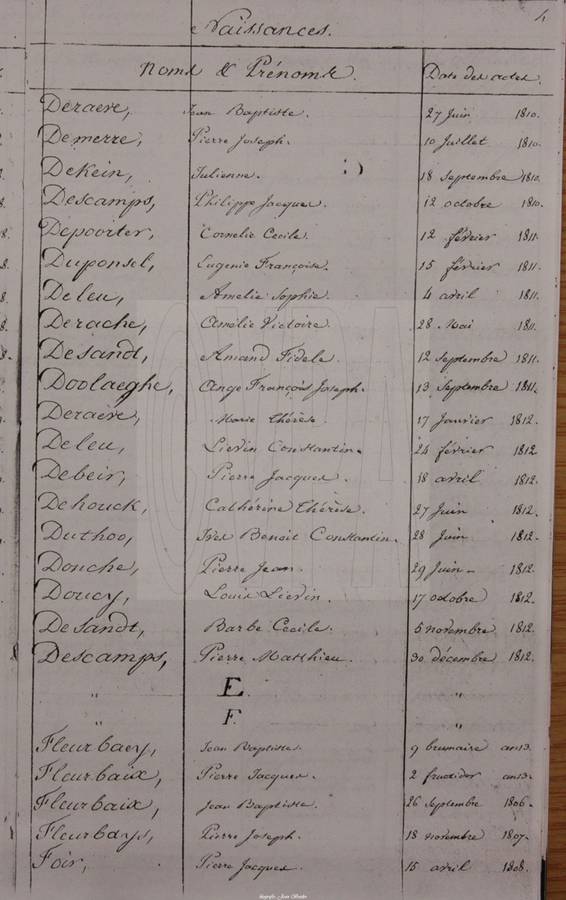 4
Naissances.
Noms & Prénoms. Date des actes.
Deraeve, Jean Baptiste. 27 Juin 1810.
Demerre, Pierre Joseph. 10 Juillet 1810.
DeKein, Julienne. 18 Septembre 1810.
Descamps, Philippe Jacques. 12 octobre 1810.
Depoorter, Cornelie Cecile. 12 février 1811.
Duponsel, Eugenie Françoise. 15 février 1811.
Deleu, Amelie Sophie. 4 avril 1811.
Derache, Amélie Victoire. 28 Mai 1811.
Desandt, Amand Fidele. 12 Septembre 1811.
Doolaeghe, Ange François Joseph. 13 Septembre 1811.
Deraeve, Marie Thérèse. 17 Janvier 1812.
Deleu, Lievin Constantin. 24 février 1812.
Debeir, Pierre Jacques. 18 avril 1812.
Dehouck, Cathérine Thérèse. 27 Juin 1812.
Duthoo, Ives Benoit Constantin. 28 Juin 1812.
Donche, Pierre Jean. 29 Juin 1812.
Doucy, Louis Lievin. 17 octobre 1812.
Desandt, Barbe Cecile. 5 novembre 1812.
Descamps, Pierre Matthieu. 30 décembre 1812.
" E. "
" F. "
Fleurbaey, Jean Baptiste. 9 brumaire an 13.
Fleurbaix, Pierre Jacques. 2 fructidor an 13.
Fleurbaix, Jean Baptiste. 26 Septembre 1806.
Fleurbays, Pierre Joseph. 18 novembre 1807.
Foir, Pierre Jacques. 15 avril 1808.